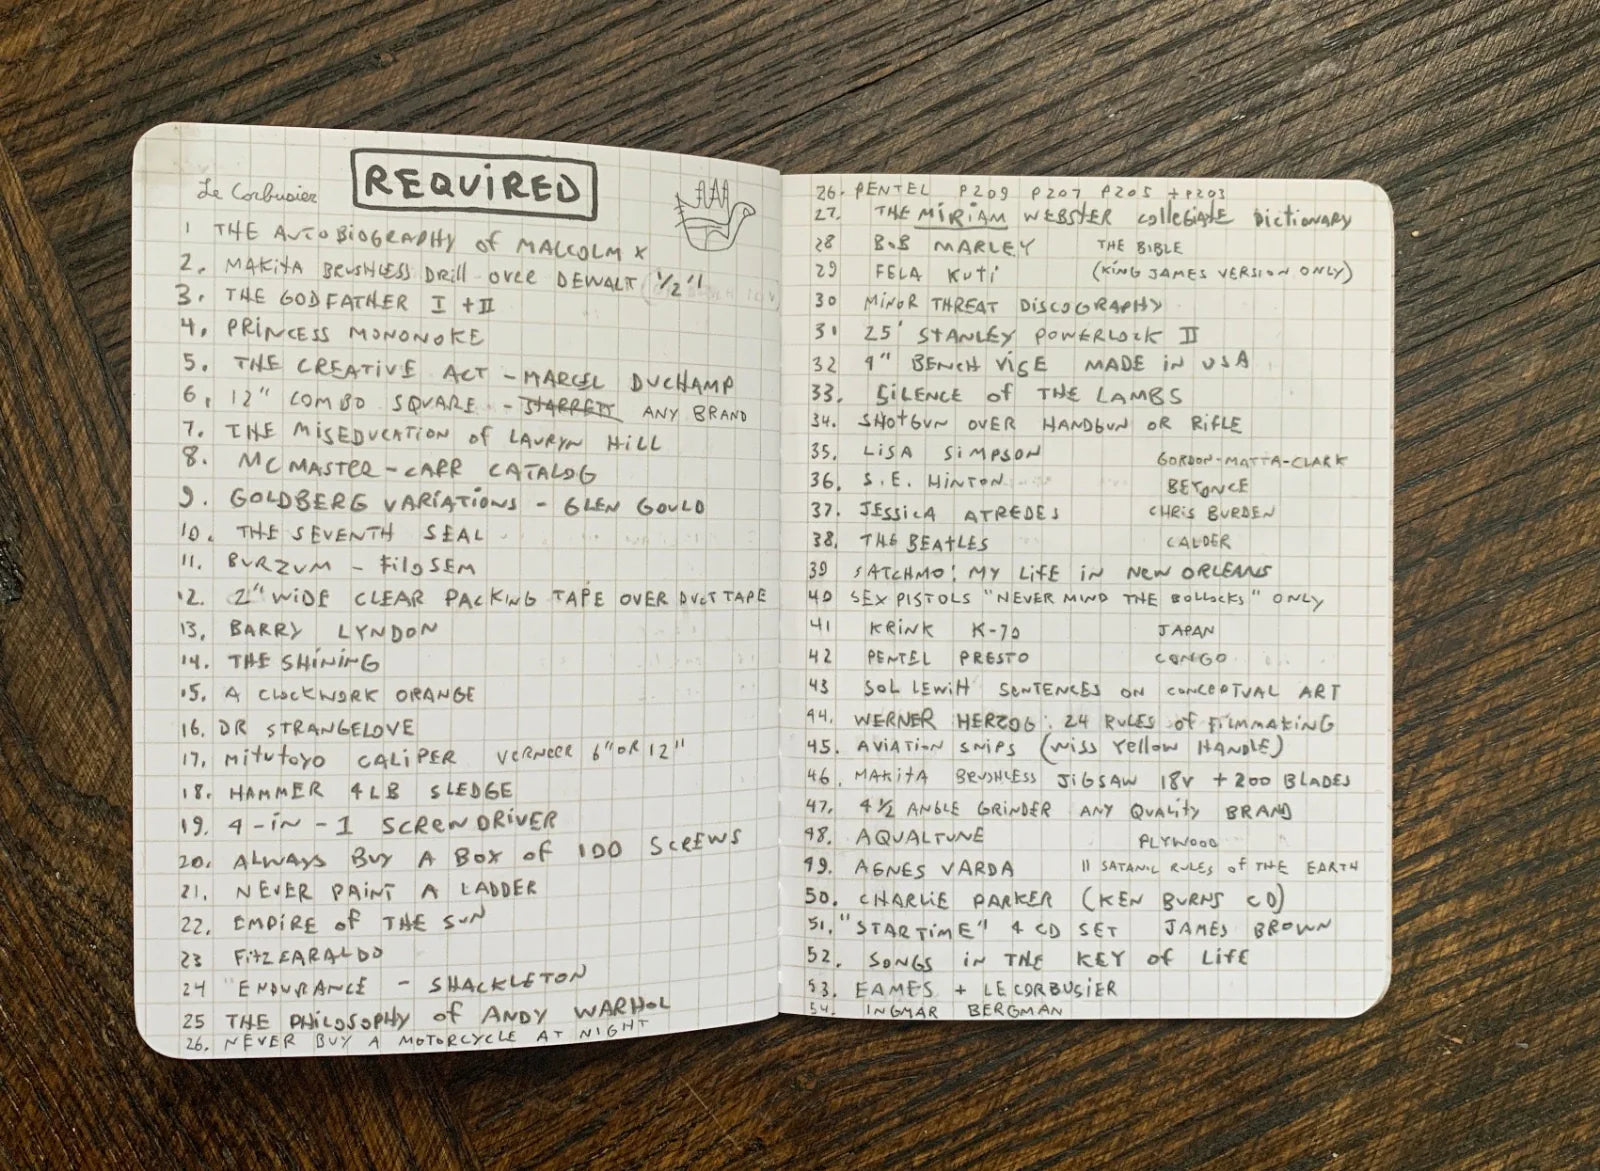 Le Corbusier
REQUIRED
1 THE AUTOBIOGRAPHY of MALCOLM X
2. MAKITA BRUSHLESS DRILL OVER DEWALT 1/2"
3. THE GODFATHER I + II
4. PRINCESS MONONOKE
5. THE CREATIVE ACT - MARCEL DUCHAMP
6. 12" COMBO SQUARE - STARRETT ANY BRAND
7. THE MISEDUCATION of LAURYN HILL
8. MCMASTER-CARR CATALOG
9. GOLDBERG VARIATIONS - GLEN GOULD
10. THE SEVENTH SEAL
11. BURZUM - FILOSEM
12. 2" WIDE CLEAR PACKING TAPE OVER DUCT TAPE
13. BARRY LYNDON
14. THE SHINING
15. A CLOCKWORK ORANGE
16. DR STRANGELOVE
17. MITUTOYO CALIPER VERNEER 6" OR 12"
18. HAMMER 4LB SLEDGE
19. 4-IN-1 SCREWDRIVER
20. ALWAYS BUY A BOX of 100 SCREWS
21. NEVER PAINT A LADDER
22. EMPIRE of THE SUN
23 FITZCARALDO
24 ENDURANCE - SHACKLETON
25 THE PHILOSOPHY of ANDY WARHOL
26. NEVER BUY A MOTORCYCLE AT NIGHT
26. PENTEL P209 P207 P205 + P203
27. THE MIRIAM WEBSTER COLLEGIATE DICTIONARY
28 BOB MARLEY THE BIBLE
29 FELA KUTI (KING JAMES VERSION ONLY)
30 MINOR THREAT DISCOGRAPHY
31 25' STANLEY POWERLOCK II
32 4" BENCH VISE MADE IN USA
33. SILENCE of THE LAMBS
34. SHOTGUN OVER HANDGUN OR RIFLE
35. LISA SIMPSON GORDON-MATTA-CLARK
36. S.E. HINTON BEYONCE
37. JESSICA ATREDES CHRIS BURDEN
38. THE BEATLES CALDER
39 SATCHMO: MY LIFE IN NEW ORLEANS
40 SEX PISTOLS "NEVER MIND THE BOLLOCKS" ONLY
41 KRINK K-70 JAPAN
42 PENTEL PRESTO CONGO
43 SOL LEWITT SENTENCES ON CONCEPTUAL ART
44. WERNER HERZOG. 24 RULES of FILMMAKING
45. AVIATION SNIPS (WISS YELLOW HANDLE)
46. MAKITA BRUSHLESS JIGSAW 18V + 200 BLADES
47. 4 1/2 ANGLE GRINDER ANY QUALITY BRAND
48. AQUALTUNE PLYWOOD
49. AGNES VARDA 11 SATANIC RULES of THE EARTH
50. CHARLIE PARKER (KEN BURNS CD)
51. "STARTIME" 4 CD SET JAMES BROWN
52. SONGS IN THE KEY of LIFE
53. EAMES + LE CORBUSIER
54. INGMAR BERGMAN